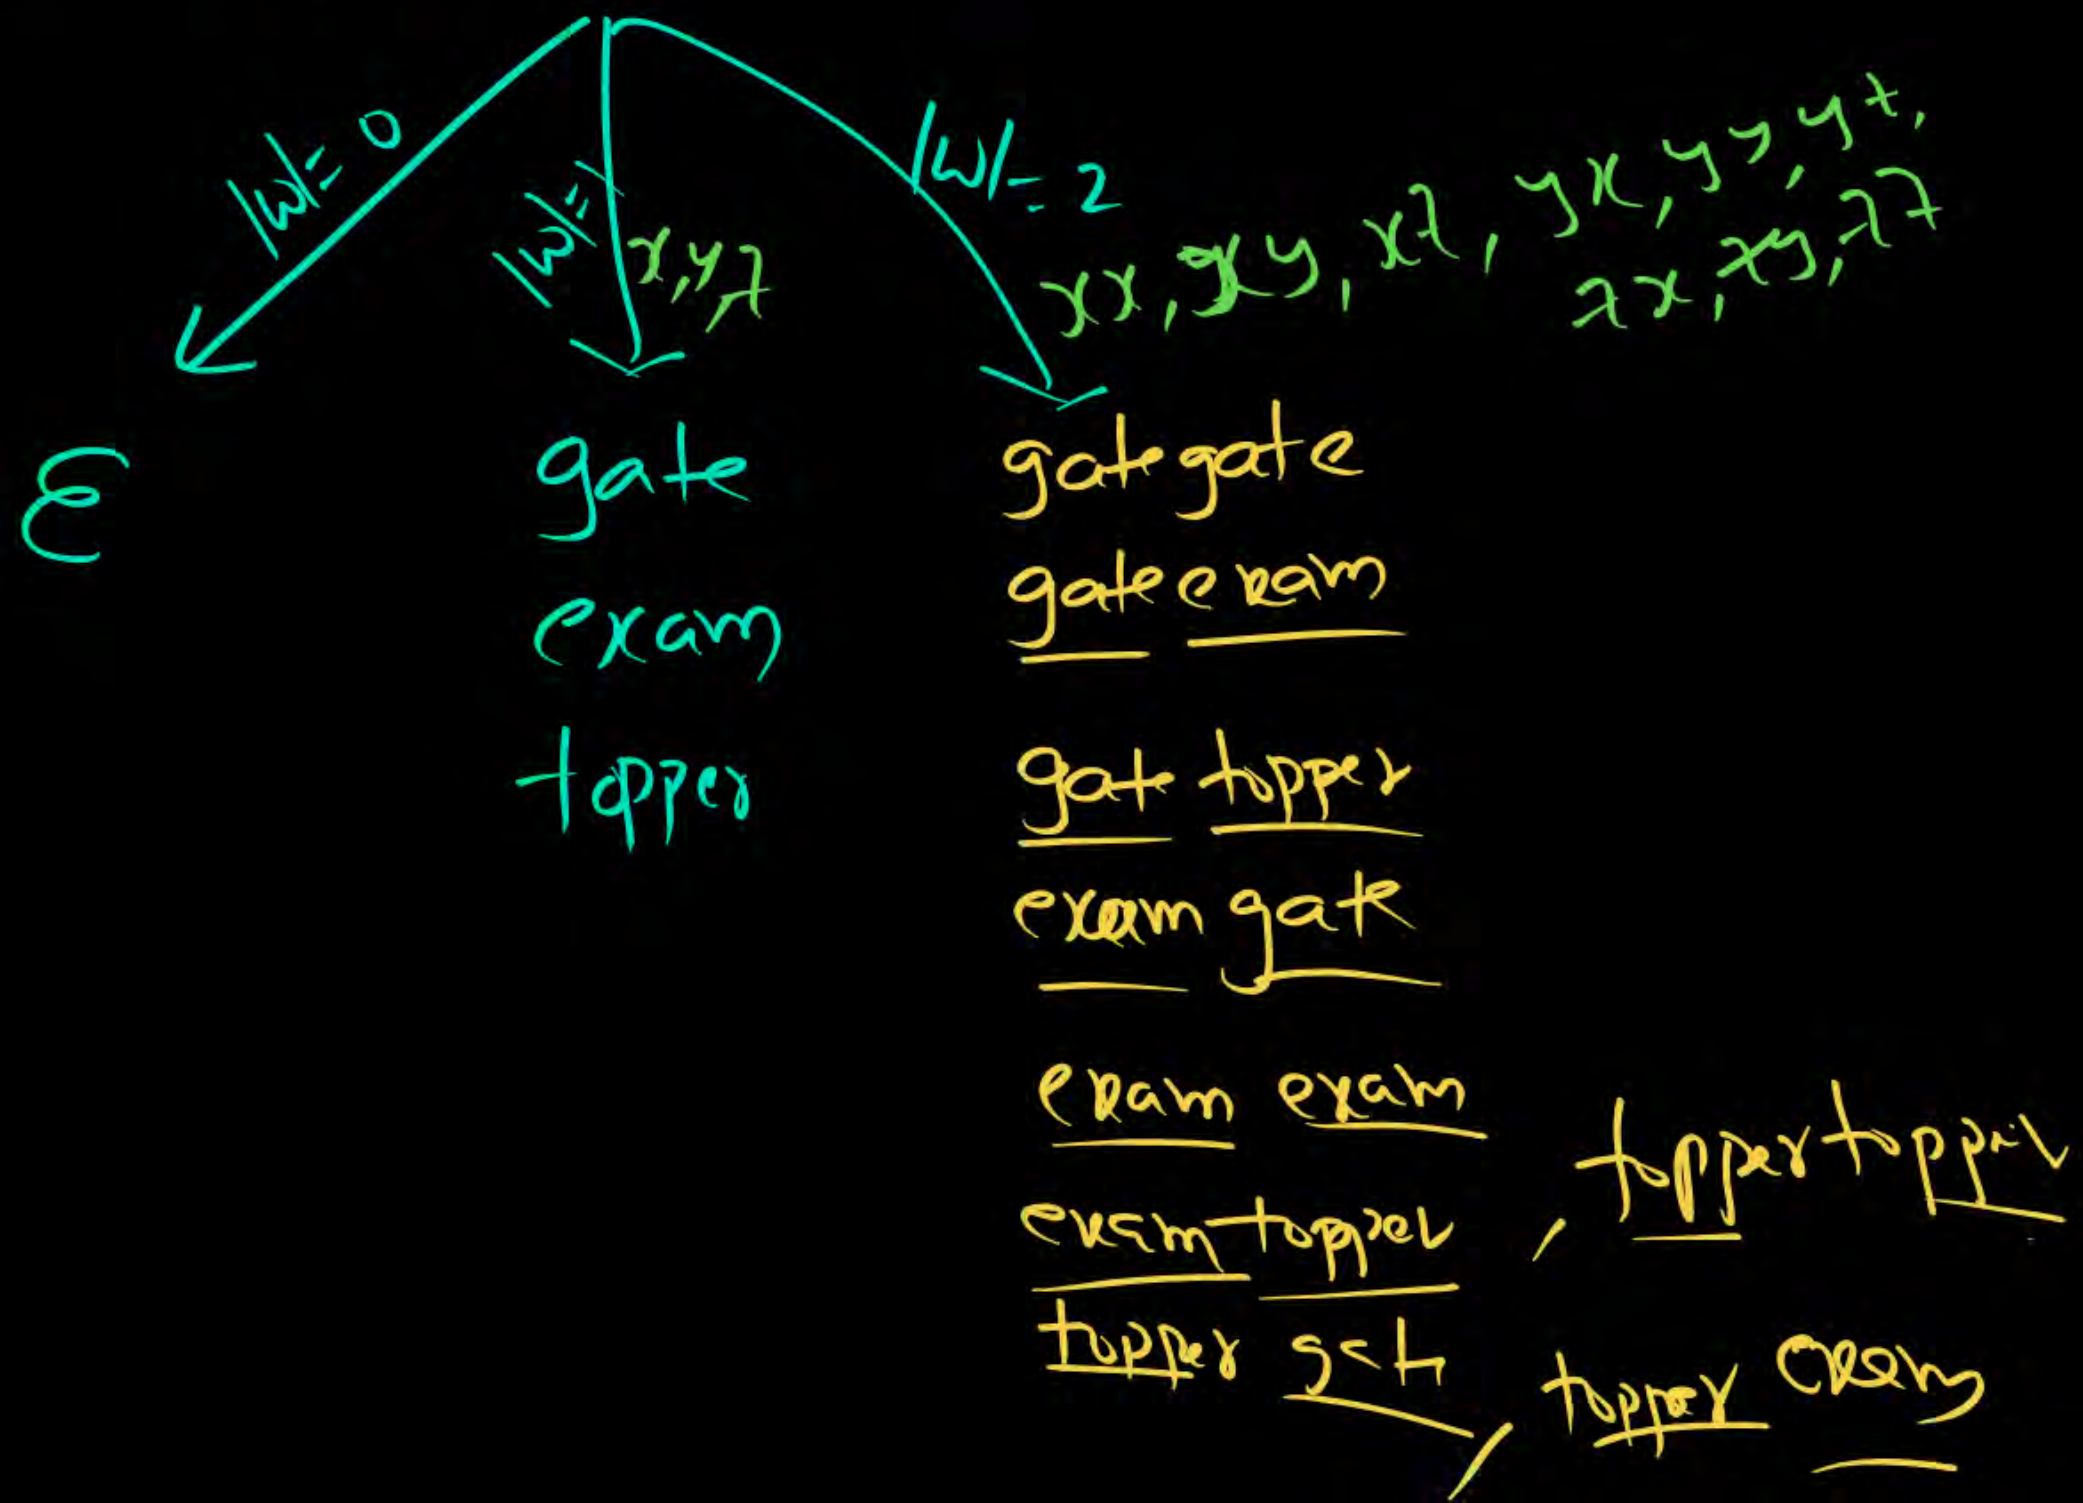 |w|= 0
|w|=1
x,y,z
|w|= 2
xx, xy, xz, yx, yy, yz,
zx, zy, zz
ε
gate
exam
topper
gategate
gateexam
gate topper
exam gate
exam exam
examtopper , toppertopper
topper gate , topper exam